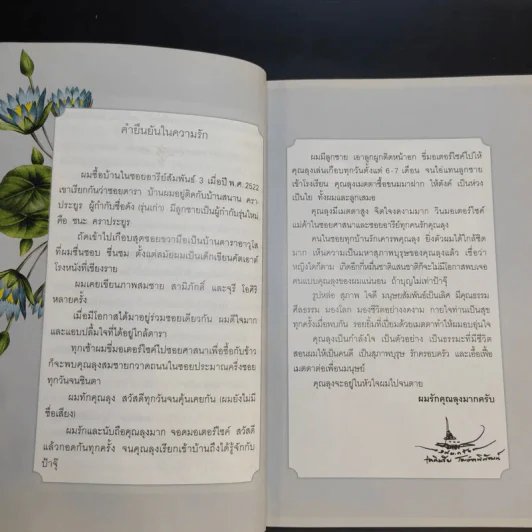 คำยืนยันในความรัก
ผมซื้อบ้านในซอยอารีย์สัมพันธ์ 3 เมื่อปี พ.ศ. 2522
เขาเรียกกันว่าซอยดารา บ้านผมอยู่ติดกับบ้านสนาน ครา
ประยูร ผู้กำกับชื่อดัง (รุ่นเก่า) มีลูกชายเป็นผู้กำกับรุ่นใหม่
คือ ชนะ คราประยูร
ถัดเข้าไปเกือบสุดซอยขวามือเป็นบ้านดาราอาวุโส
ที่ผมชื่นชอบ ชื่นชม ตั้งแต่สมัยผมเป็นเด็กเขียนคัตเอาต์
โรงหนังที่เชียงราย
ผมเคยเขียนภาพสมชาย สามิภักดิ์ และจุรี โอศิริ
หลายครั้ง
เมื่อมีโอกาสได้มาอยู่ร่วมซอยเดียวกัน ผมดีใจมาก
และแอบปลื้มใจที่ได้อยู่ใกล้ดารา
ทุกเช้าผมขี่มอเตอร์ไซค์ไปซอยศาสนาเพื่อซื้อกับข้าว
ก็จะพบคุณลุงสมชายกวาดถนนในซอยประมาณครึ่งซอย
ทุกวันจนชินตา
ผมทักคุณลุง สวัสดีทุกวันจนคุ้นเคยกัน (ผมยังไม่มี
ชื่อเสียง)
ผมรักและนับถือคุณลุงมาก จอดมอเตอร์ไซค์ สวัสดี
แล้วกอดกันทุกครั้ง จนคุณลุงเรียกเข้าบ้านถึงได้รู้จักกับ
ป้าจุ๊
ผมมีลูกชาย เอาลูกผูกติดหน้าอก ขี่มอเตอร์ไซค์ไปให้
คุณลุงเล่นเกือบทุกวันตั้งแต่ 6-7 เดือน จนไอ่แทนลูกชาย
เข้าโรงเรียน คุณลุงเมตตาซื้อขนมมาฝาก ให้ตังค์ เป็นห่วง
เป็นใย ทั้งผมและลูกเสมอ
คุณลุงมีเมตตาสูง จิตใจงดงามมาก วินมอเตอร์ไซค์
แม่ค้าในซอยศาสนาและซอยอารีย์ทุกคนรักคุณลุง
คนในซอยทุกบ้านรักเคารพคุณลุง ยิ่งตัวผมได้ใกล้ชิด
มาก เห็นความเป็นมหาสุภาพบุรุษของคุณลุงแล้ว เชื่อว่า
หญิงใดก็ตาม เกิดอีกกี่หมื่นชาติแสนชาติก็จะไม่มีโอกาสพบเจอ
คนแบบคุณลุงของผมแน่นอน ถ้าบุญไม่เท่าป้าจุ๊
รูปหล่อ สุภาพ ใจดี มนุษยสัมพันธ์เป็นเลิศ มีคุณธรรม
ศีลธรรม มองโลก มองชีวิตอย่างงดงาม กายใจท่านเป็นสุข
ทุกครั้งเมื่อพบกัน รอยยิ้มที่เปี่ยมด้วยเมตตาทำให้ผมอบอุ่นใจ
คุณลุงเป็นกำลังใจ เป็นตัวอย่าง เป็นธรรมะที่มีชีวิต
สอนผมให้เป็นคนดี เป็นสุภาพบุรุษ รักครอบครัว และเอื้อเฟื้อ
เมตตาต่อเพื่อนมนุษย์
คุณลุงจะอยู่ในหัวใจผมไปจนตาย
ผมรักคุณลุงมากครับ